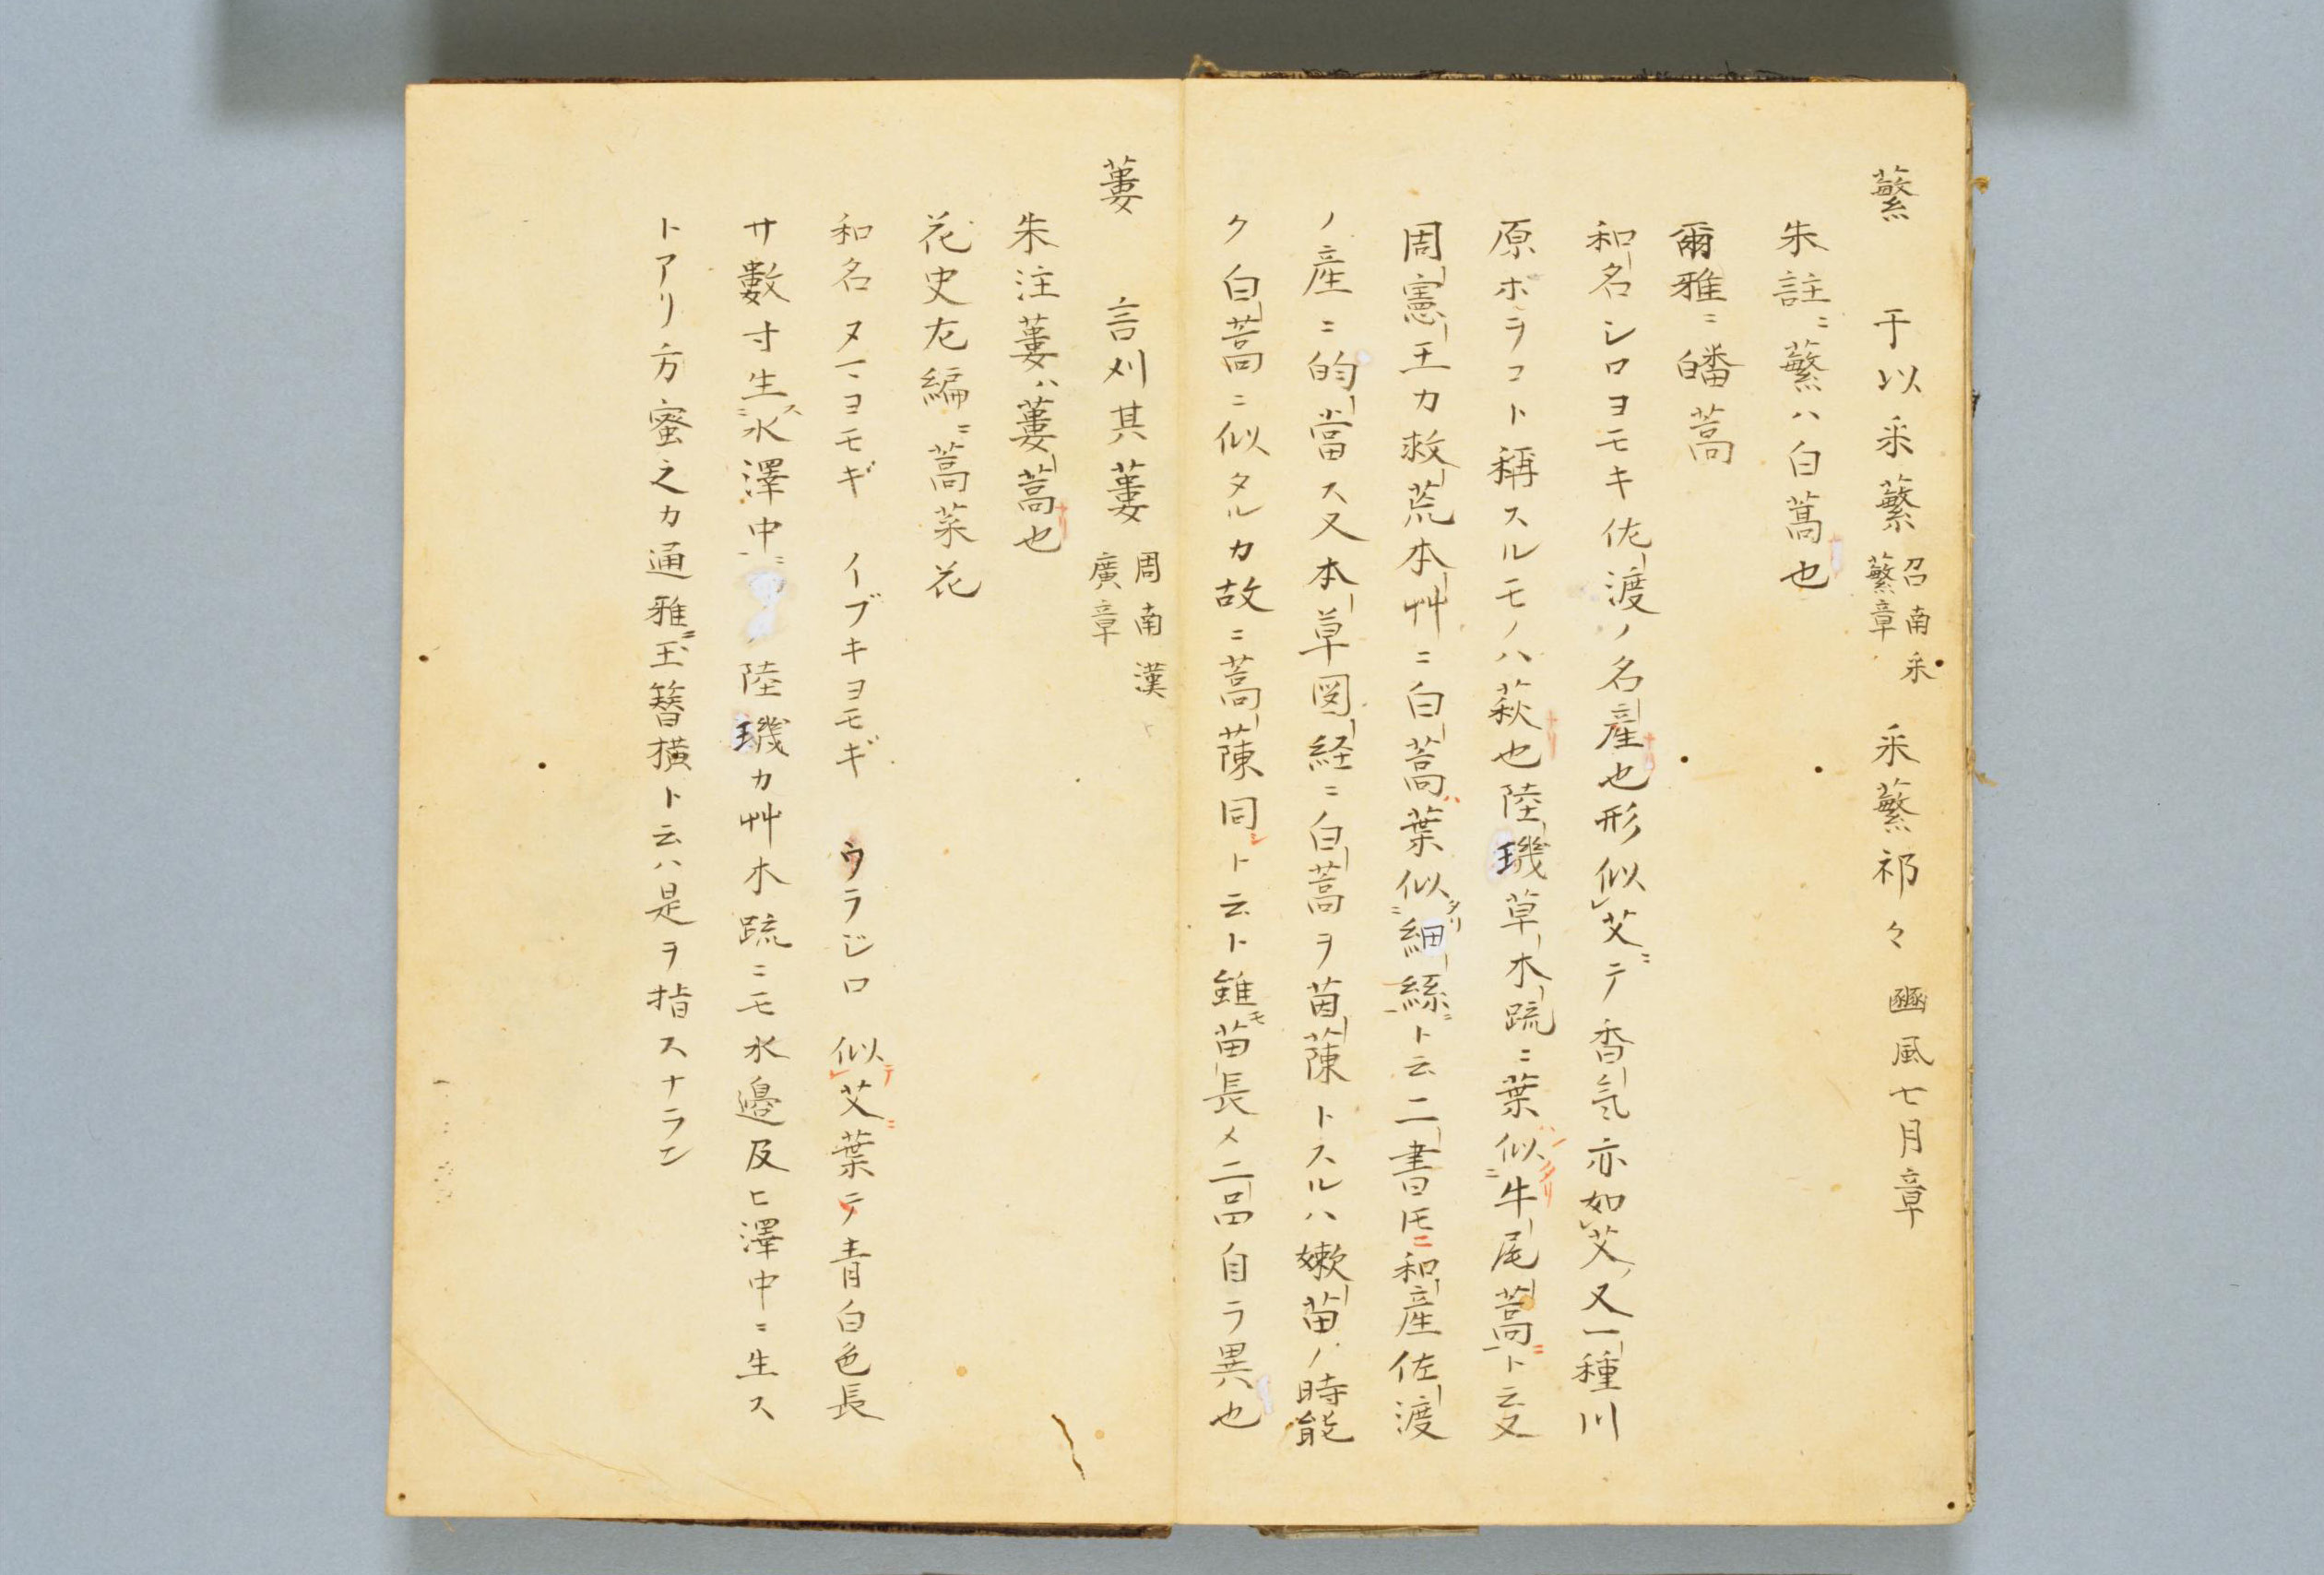 蘩　于以采蘩　召南采蘩章　采蘩祁々　豳風七月章
朱註ニ蘩ハ白蒿也
爾雅ニ皤蒿
和名シロヨモキ佐渡ノ名産也形似艾ニテ香気亦如艾又一種川
原ホラコト稱スルモノハ萩也陸璣草木疏ニ葉似牛尾蒿ニト云又
周憲王カ救荒本艸ニ白蒿葉似タリ細絲ニト云二書𪜈ニ和産佐渡
ノ産ニ的當ス又本草図経ニ白蒿ヲ茵蔯トスルハ嫰苗ノ時能
ク白蒿ニ似タルカ故ニ蒿蔯同シト云ト雖モ苗長メ二品自ラ異也
蔞　言刈其蔞　周南漢廣章
朱注蔞ハ蔞蒿也
花史左編ニ蒿菜花
和名ヌマヨモギ　イブキヨモギ　ウラジロ　似テ艾ニ葉テ青白色長
サ數寸生ス水澤中ニ陸璣カ艸木疏ニモ水邉及ヒ澤中ニ生ス
トアリ方蜜之カ通雅ニ玉簪横ト云ハ是ヲ指スナラン